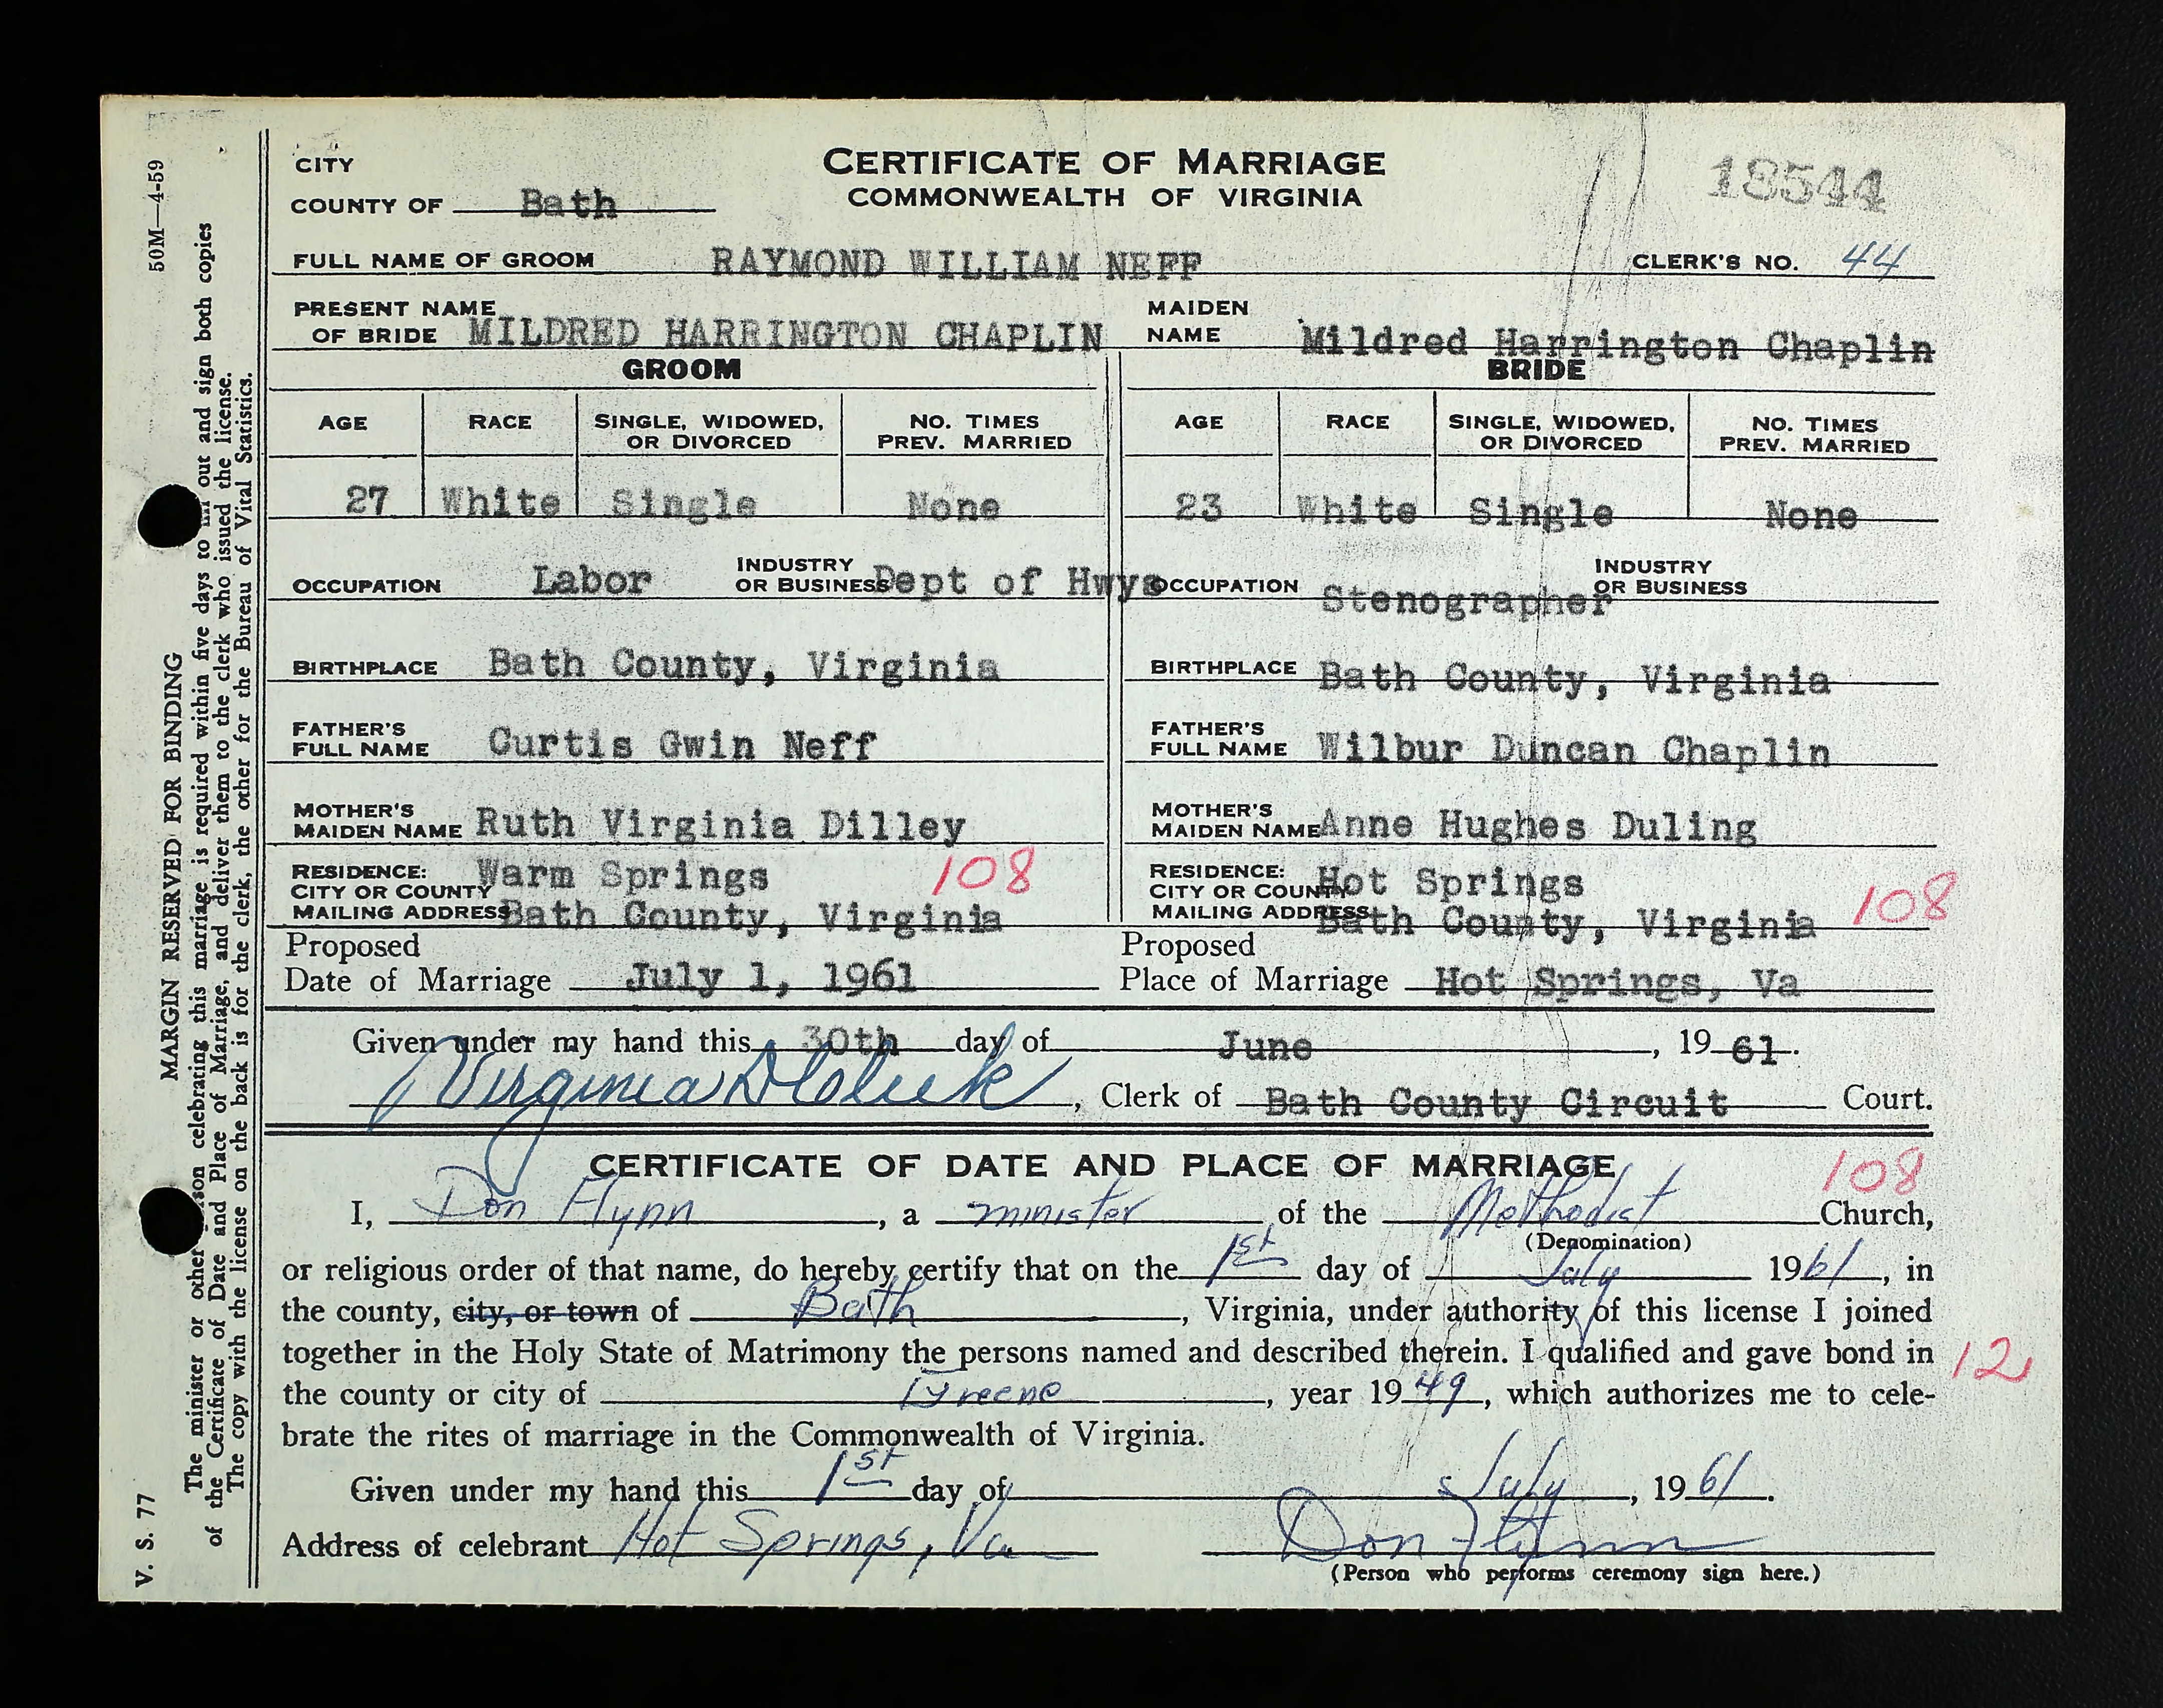 CITY
CERTIFICATE OF MARRIAGE
COUNTY OF Bath
COMMONWEALTH OF VIRGINIA
18544
FULL NAME OF GROOM RAYMOND WILLIAM NEFF CLERK'S NO. 44
PRESENT NAME OF BRIDE MILDRED HARRINGTON CHAPLIN MAIDEN NAME Mildred Harrington Chaplin
GROOM BRIDE
AGE RACE SINGLE, WIDOWED, OR DIVORCED NO. TIMES PREV. MARRIED AGE RACE SINGLE, WIDOWED, OR DIVORCED NO. TIMES PREV. MARRIED
27 White Single None 23 White Single None
OCCUPATION Labor INDUSTRY OR BUSINESS Dept of Hwys OCCUPATION Stenographer INDUSTRY OR BUSINESS
BIRTHPLACE Bath County, Virginia BIRTHPLACE Bath County, Virginia
FATHER'S FULL NAME Curtis Gwin Neff FATHER'S FULL NAME Wilbur Duncan Chaplin
MOTHER'S MAIDEN NAME Ruth Virginia Dilley MOTHER'S MAIDEN NAME Anne Hughes Duling
RESIDENCE: CITY OR COUNTY Warm Springs 108 RESIDENCE: CITY OR COUNTY Hot Springs
MAILING ADDRESS Bath County, Virginia MAILING ADDRESS Bath County, Virginia 108
Proposed Date of Marriage July 1, 1961 Proposed Place of Marriage Hot Springs, Va
Given under my hand this 30th day of June, 19 61.
Virginia, Clerk of Bath County Circuit Court.
CERTIFICATE OF DATE AND PLACE OF MARRIAGE 108
I, Don Flynn, a minister of the Methodist Church,
(Denomination)
or religious order of that name, do hereby certify that on the 1st day of July 1961, in
the county, city, or town of Bath, Virginia, under authority of this license I joined
together in the Holy State of Matrimony the persons named and described therein. I qualified and gave bond in 12
the county or city of Greene, year 1949, which authorizes me to cele-
brate the rites of marriage in the Commonwealth of Virginia.
Given under my hand this 1st day of July, 1961.
Address of celebrant Hot Springs, Va Don Flynn
(Person who performs ceremony sign here.)
V. S. 77 50M—4-59
MARGIN RESERVED FOR BINDING
The minister or other person celebrating this marriage is required within five days to fill out and sign both copies
of the Certificate of Date and Place of Marriage, and deliver them to the clerk who issued the license.
The copy with the license on the back is for the clerk, the other for the Bureau of Vital Statistics.